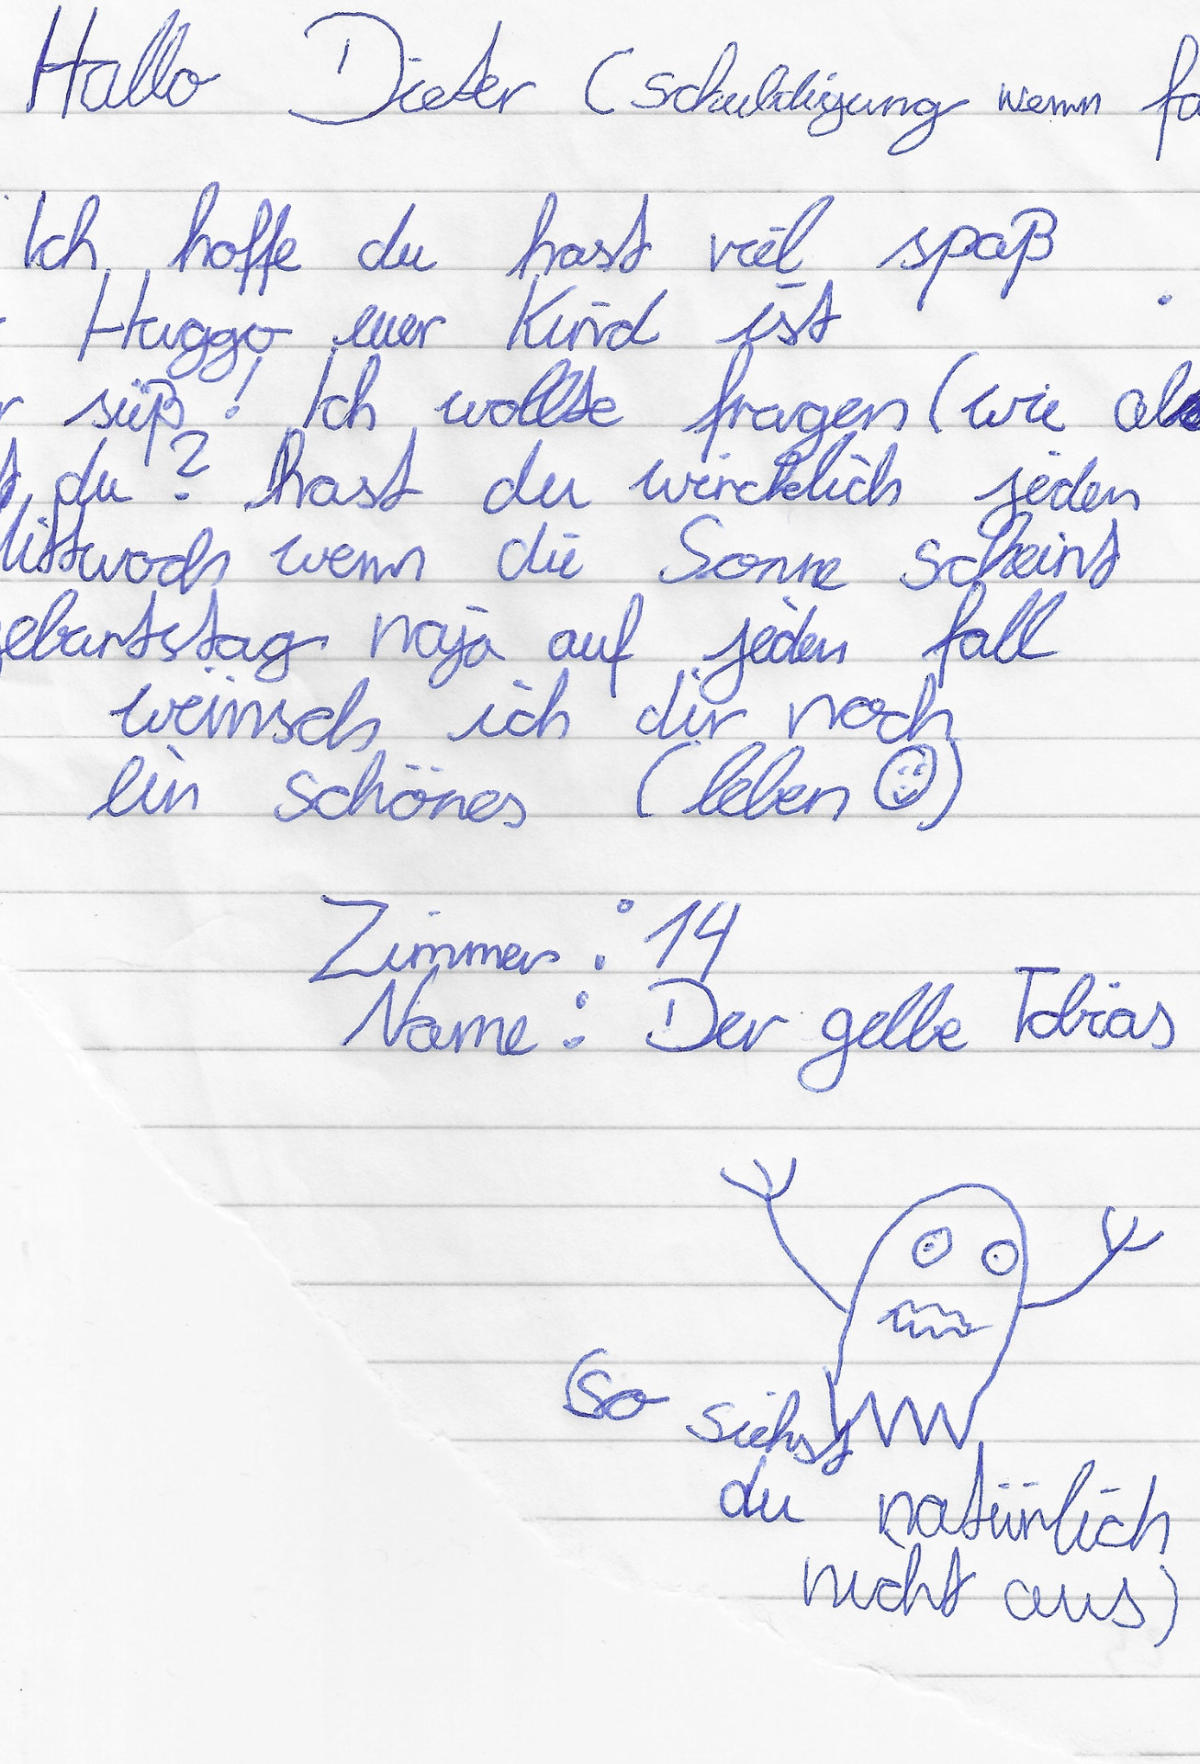 Hallo Dieter (schuldigung wenn fa
Ich hoffe du hast viel spaß
Huggo euer Kind ist
r süß! Ich wollte fragen (wie al
t du? hast du wircklich jeden
Mittwoch wenn die Sonne scheint
gebartstag naja auf jeden fall
wünsch ich dir noch
ein schönes (leben ☺)
Zimmer: 14
Name: Der gelbe Tobias
(so siehst
du natürlich
nicht aus)